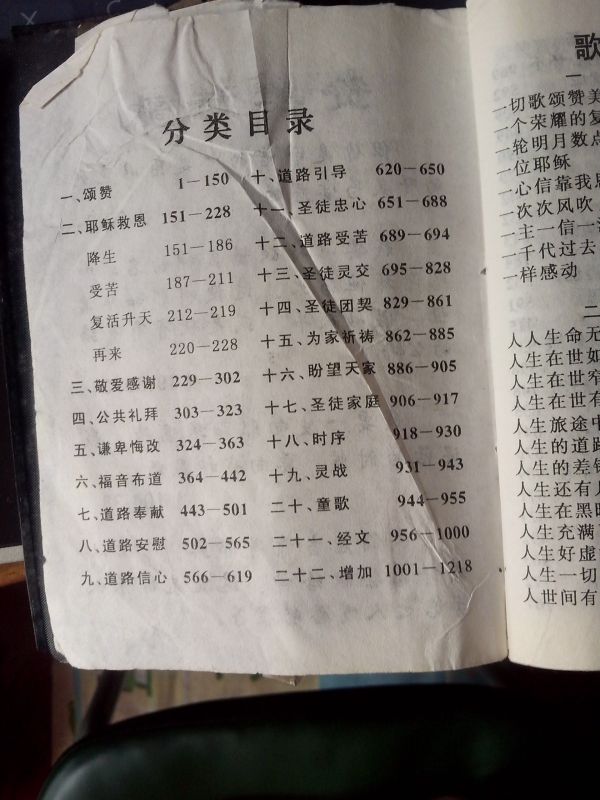 分类目录
一、颂赞 1—150
二、耶稣救恩 151—228
降生 151—186
受苦 187—211
复活升天 212—219
再来 220—228
三、敬爱感谢 229—302
四、公共礼拜 303—323
五、谦卑悔改 324—363
六、福音布道 364—442
七、道路奉献 443—501
八、道路安慰 502—565
九、道路信心 566—619
十、道路引导 620—650
十一、圣徒忠心 651—688
十二、道路受苦 689—694
十三、圣徒灵交 695—828
十四、圣徒团契 829—861
十五、为家祈祷 862—885
十六、盼望天家 886—905
十七、圣徒家庭 906—917
十八、时序 918—930
十九、灵战 931—943
二十、童歌 944—955
二十一、经文 956—1000
二十二、增加 1001—1218
歌
一
一切歌颂赞美
一个荣耀的复
一轮明月数点
一位耶稣
一心信靠我
一次次风吹
一主一信一
一千代过去
一样感动
二
人人生命无
人生在世如
人生在世窄
人生在世有
人生旅途中
人生的道路
人生的差
人生还有几
人生在黑暗
人生充满
人生好虚
人生一切
人世间有